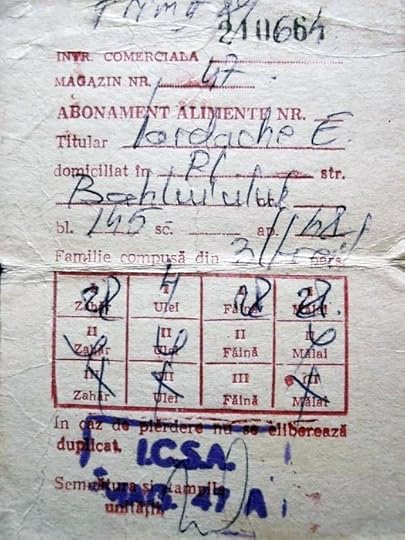 210664
INTR. COMERCIALA
MAGAZIN NR. 47
ABONAMENT ALIMENTE NR.
Titular Iordache E.
domiciliat în Pl. str.
Bahluiului
bl. 145 sc. ap.
Familie compusă din 3 pers.
I I I I
Zahăr Ulei Făină Mălai
28 4 28 28.
II II II II
Zahăr Ulei Făină Mălai
III III III III
Zahăr Ulei Făină Mălai
In caz de pierdere nu se eliberează
duplicat.
I.C.S.A.
Semnătura și ștampila
47 A
unității